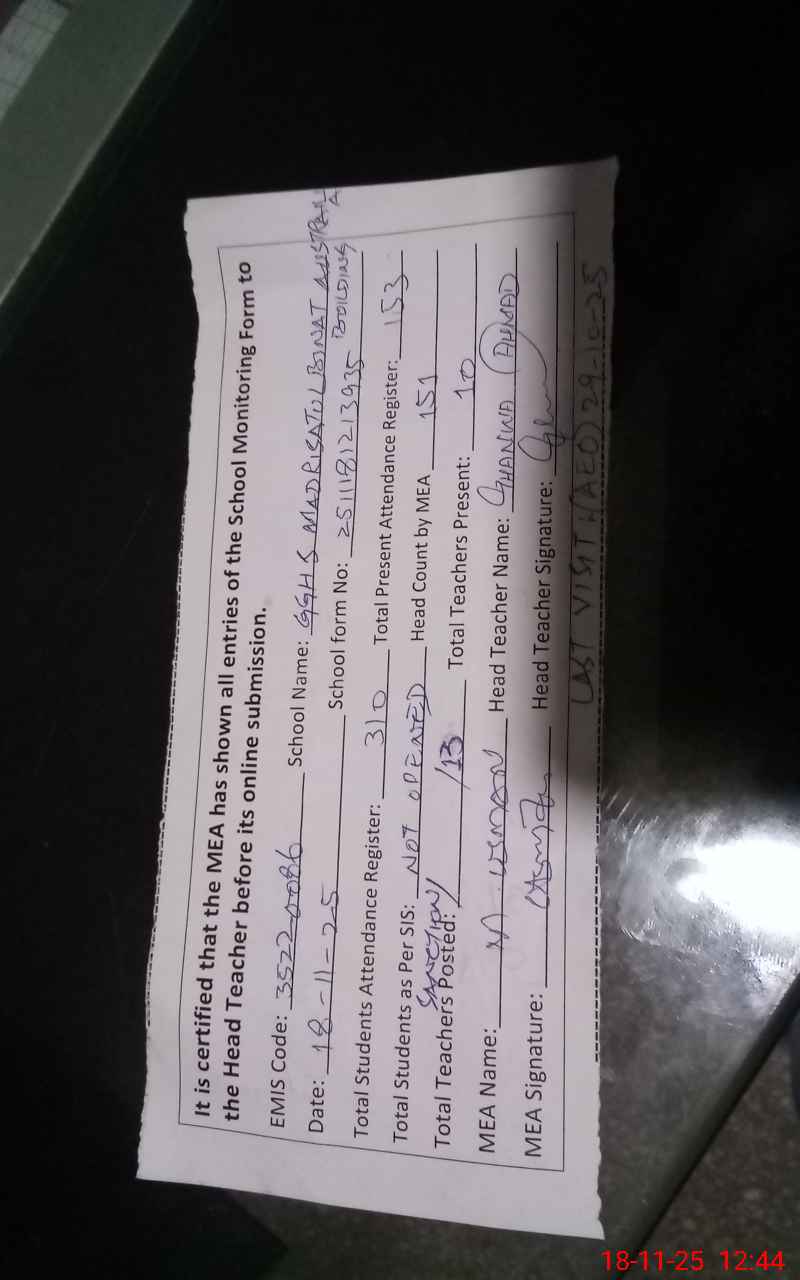 It is certified that the MEA has shown all entries of the School Monitoring Form to
the Head Teacher before its online submission.
EMIS Code: 35220086 School Name: GGHS MADRISATUL BINAT AUSTRALIA
Date: 18-11-25 School form No: 251118121213935 BUILDING
Total Students Attendance Register: 310 Total Present Attendance Register: 153
Total Students as Per SIS: NOT OPENED Head Count by MEA 151
SANCTION/
Total Teachers Posted: /13 Total Teachers Present: 10
MEA Name: M. USMAN Head Teacher Name: GHANWA AHMAD
MEA Signature: Head Teacher Signature:
LAST VISIT (AEO) 29-10-25
18-11-25 12:44